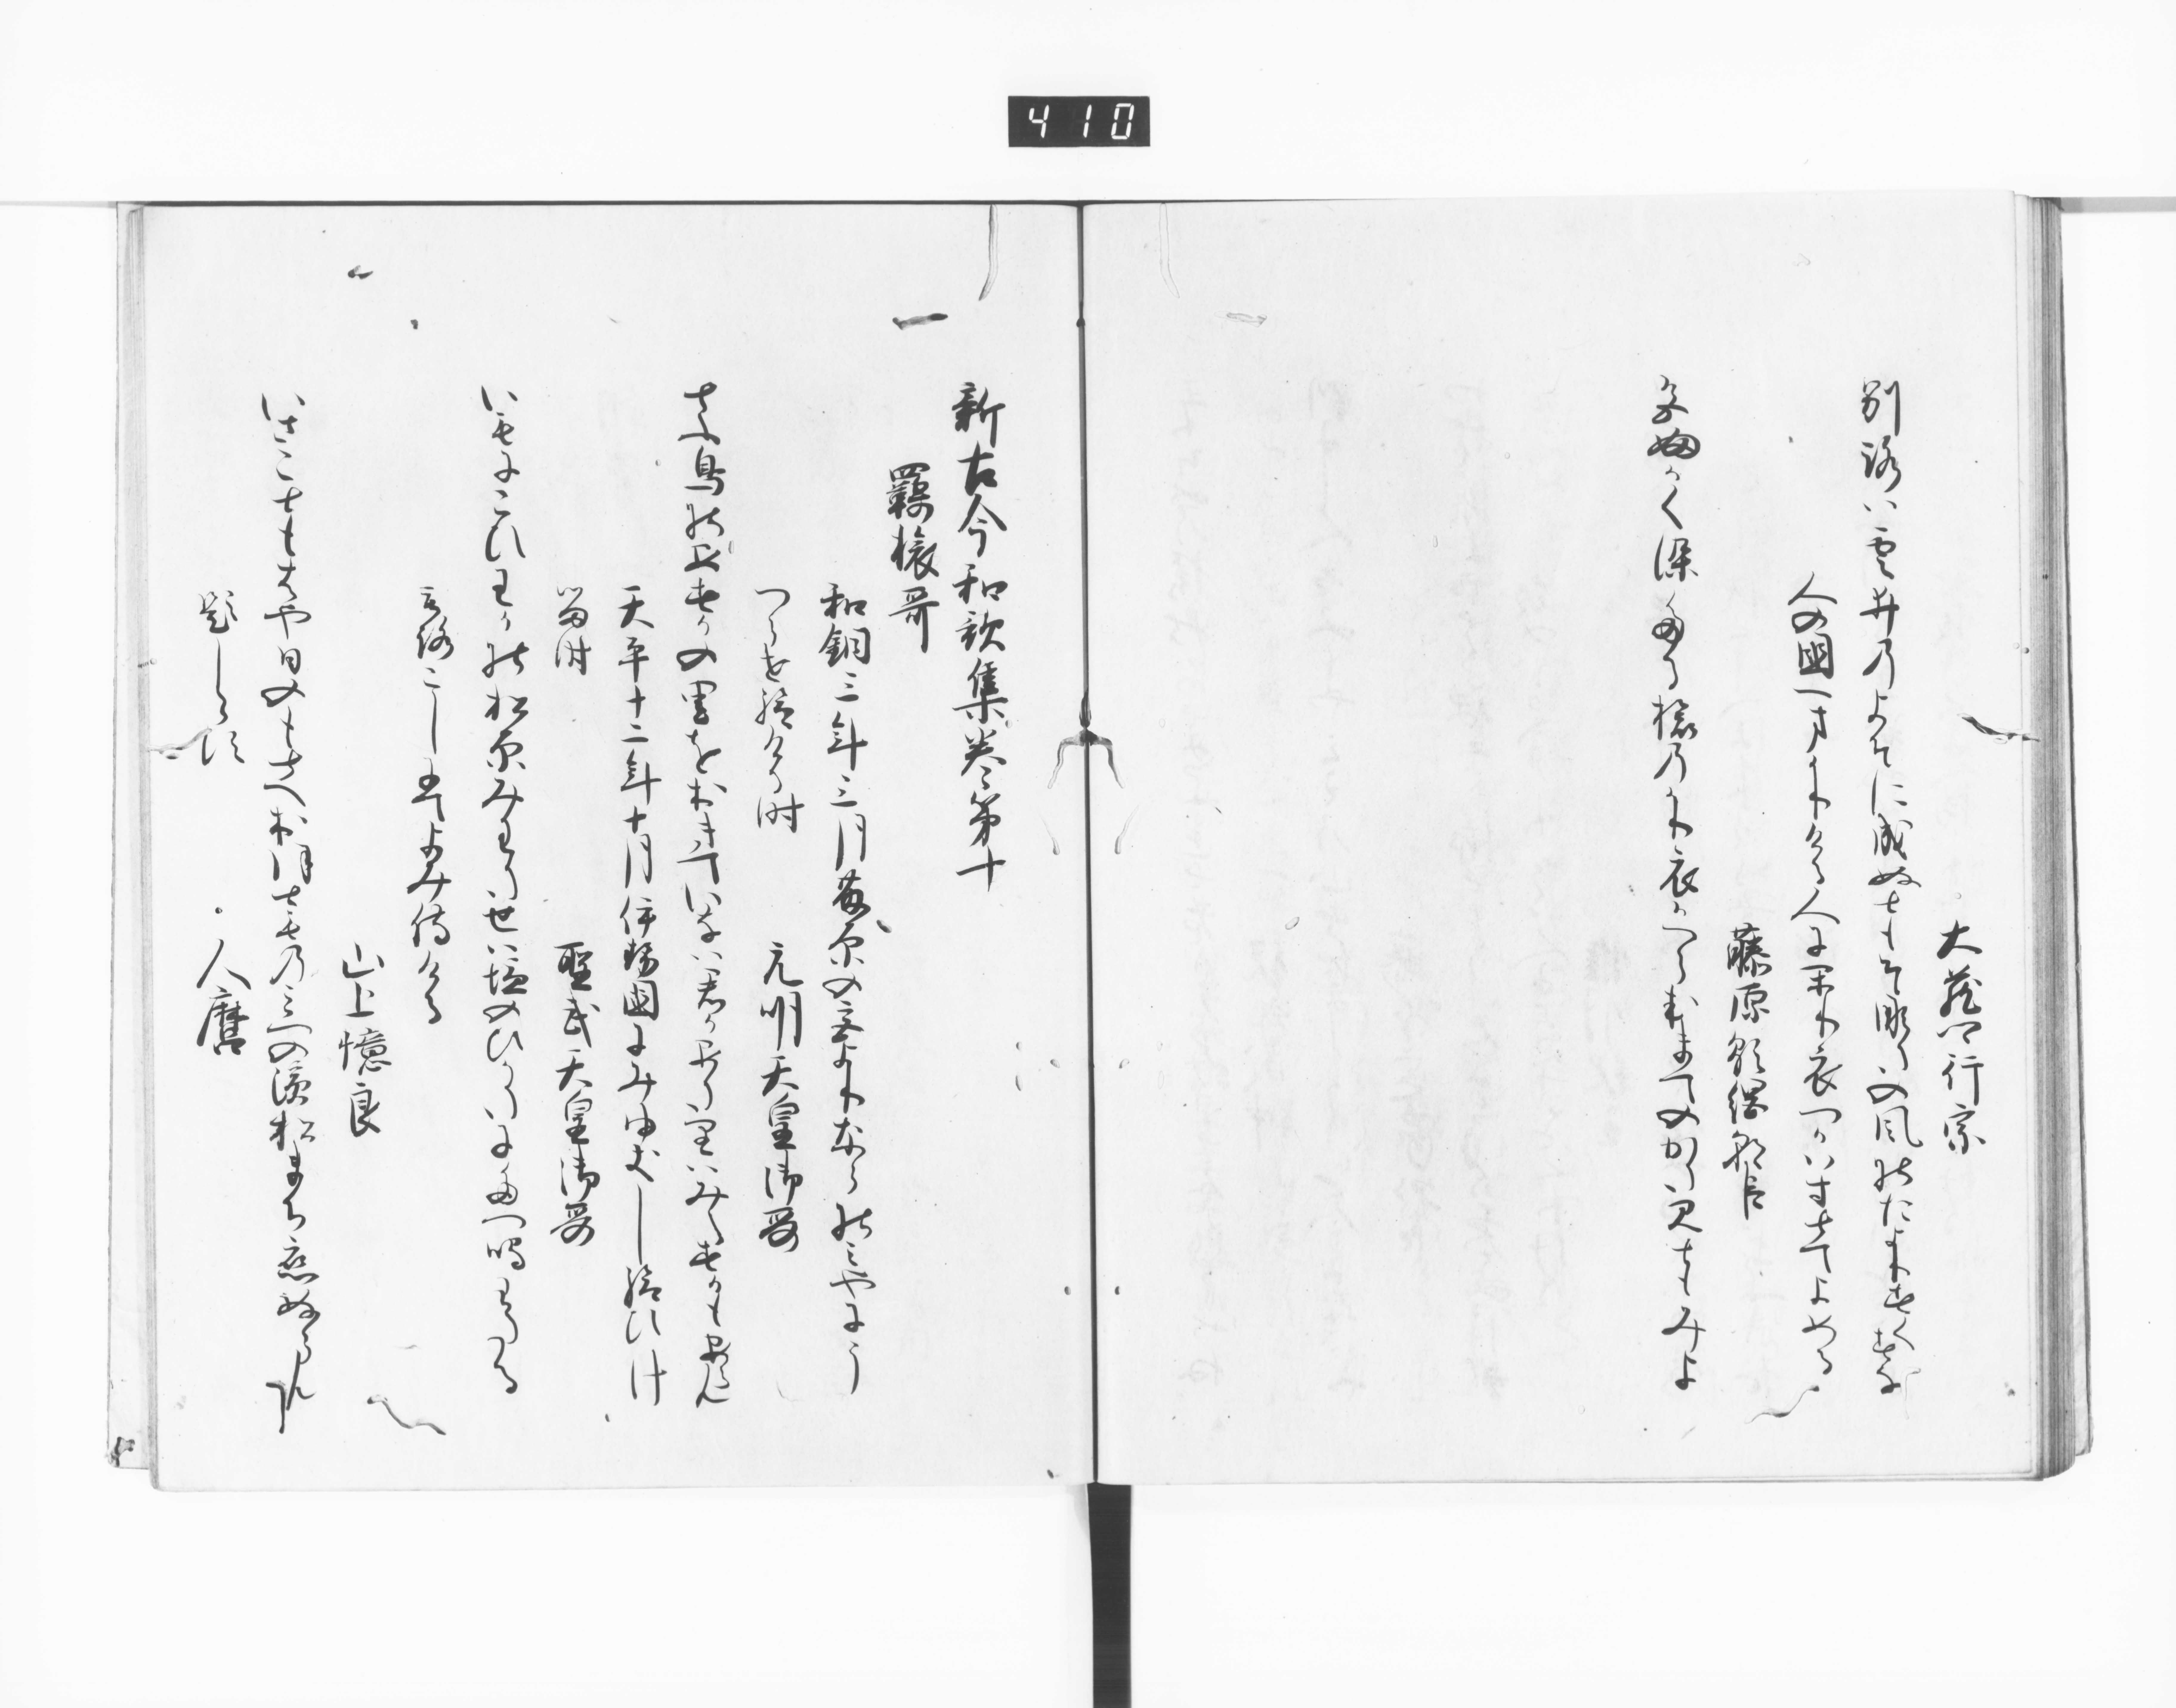 410
大蔵卿行宗
別路は雲井のよそに成ぬともそなたの風のたよりすくすな
人の国へまかりける人にかり衣つかはすとてよめる
藤原顕綱朝臣
色ふかく染たる旅のかり衣かへらむまてのかたみともみよ
新古今和歌集巻第十
羈旅哥
和銅三年三月藤原の宮よりならのみやにう
つらせ給ける時　元明天皇御哥
とふ鳥のあすかの里をおきていなは君かあたりはみえすかもあらん
天平十二年十月伊勢国にみゆきし給ひけ
る時　聖武天皇御哥
いもにこひわかの松原みわたせは塩のひかたにたつ鳴わたる
もろこしにてよみ侍ける
山上憶良
いさことゝもはや日のもとへおほとものみつの浜松まち恋ぬらん
題しらす　人麿